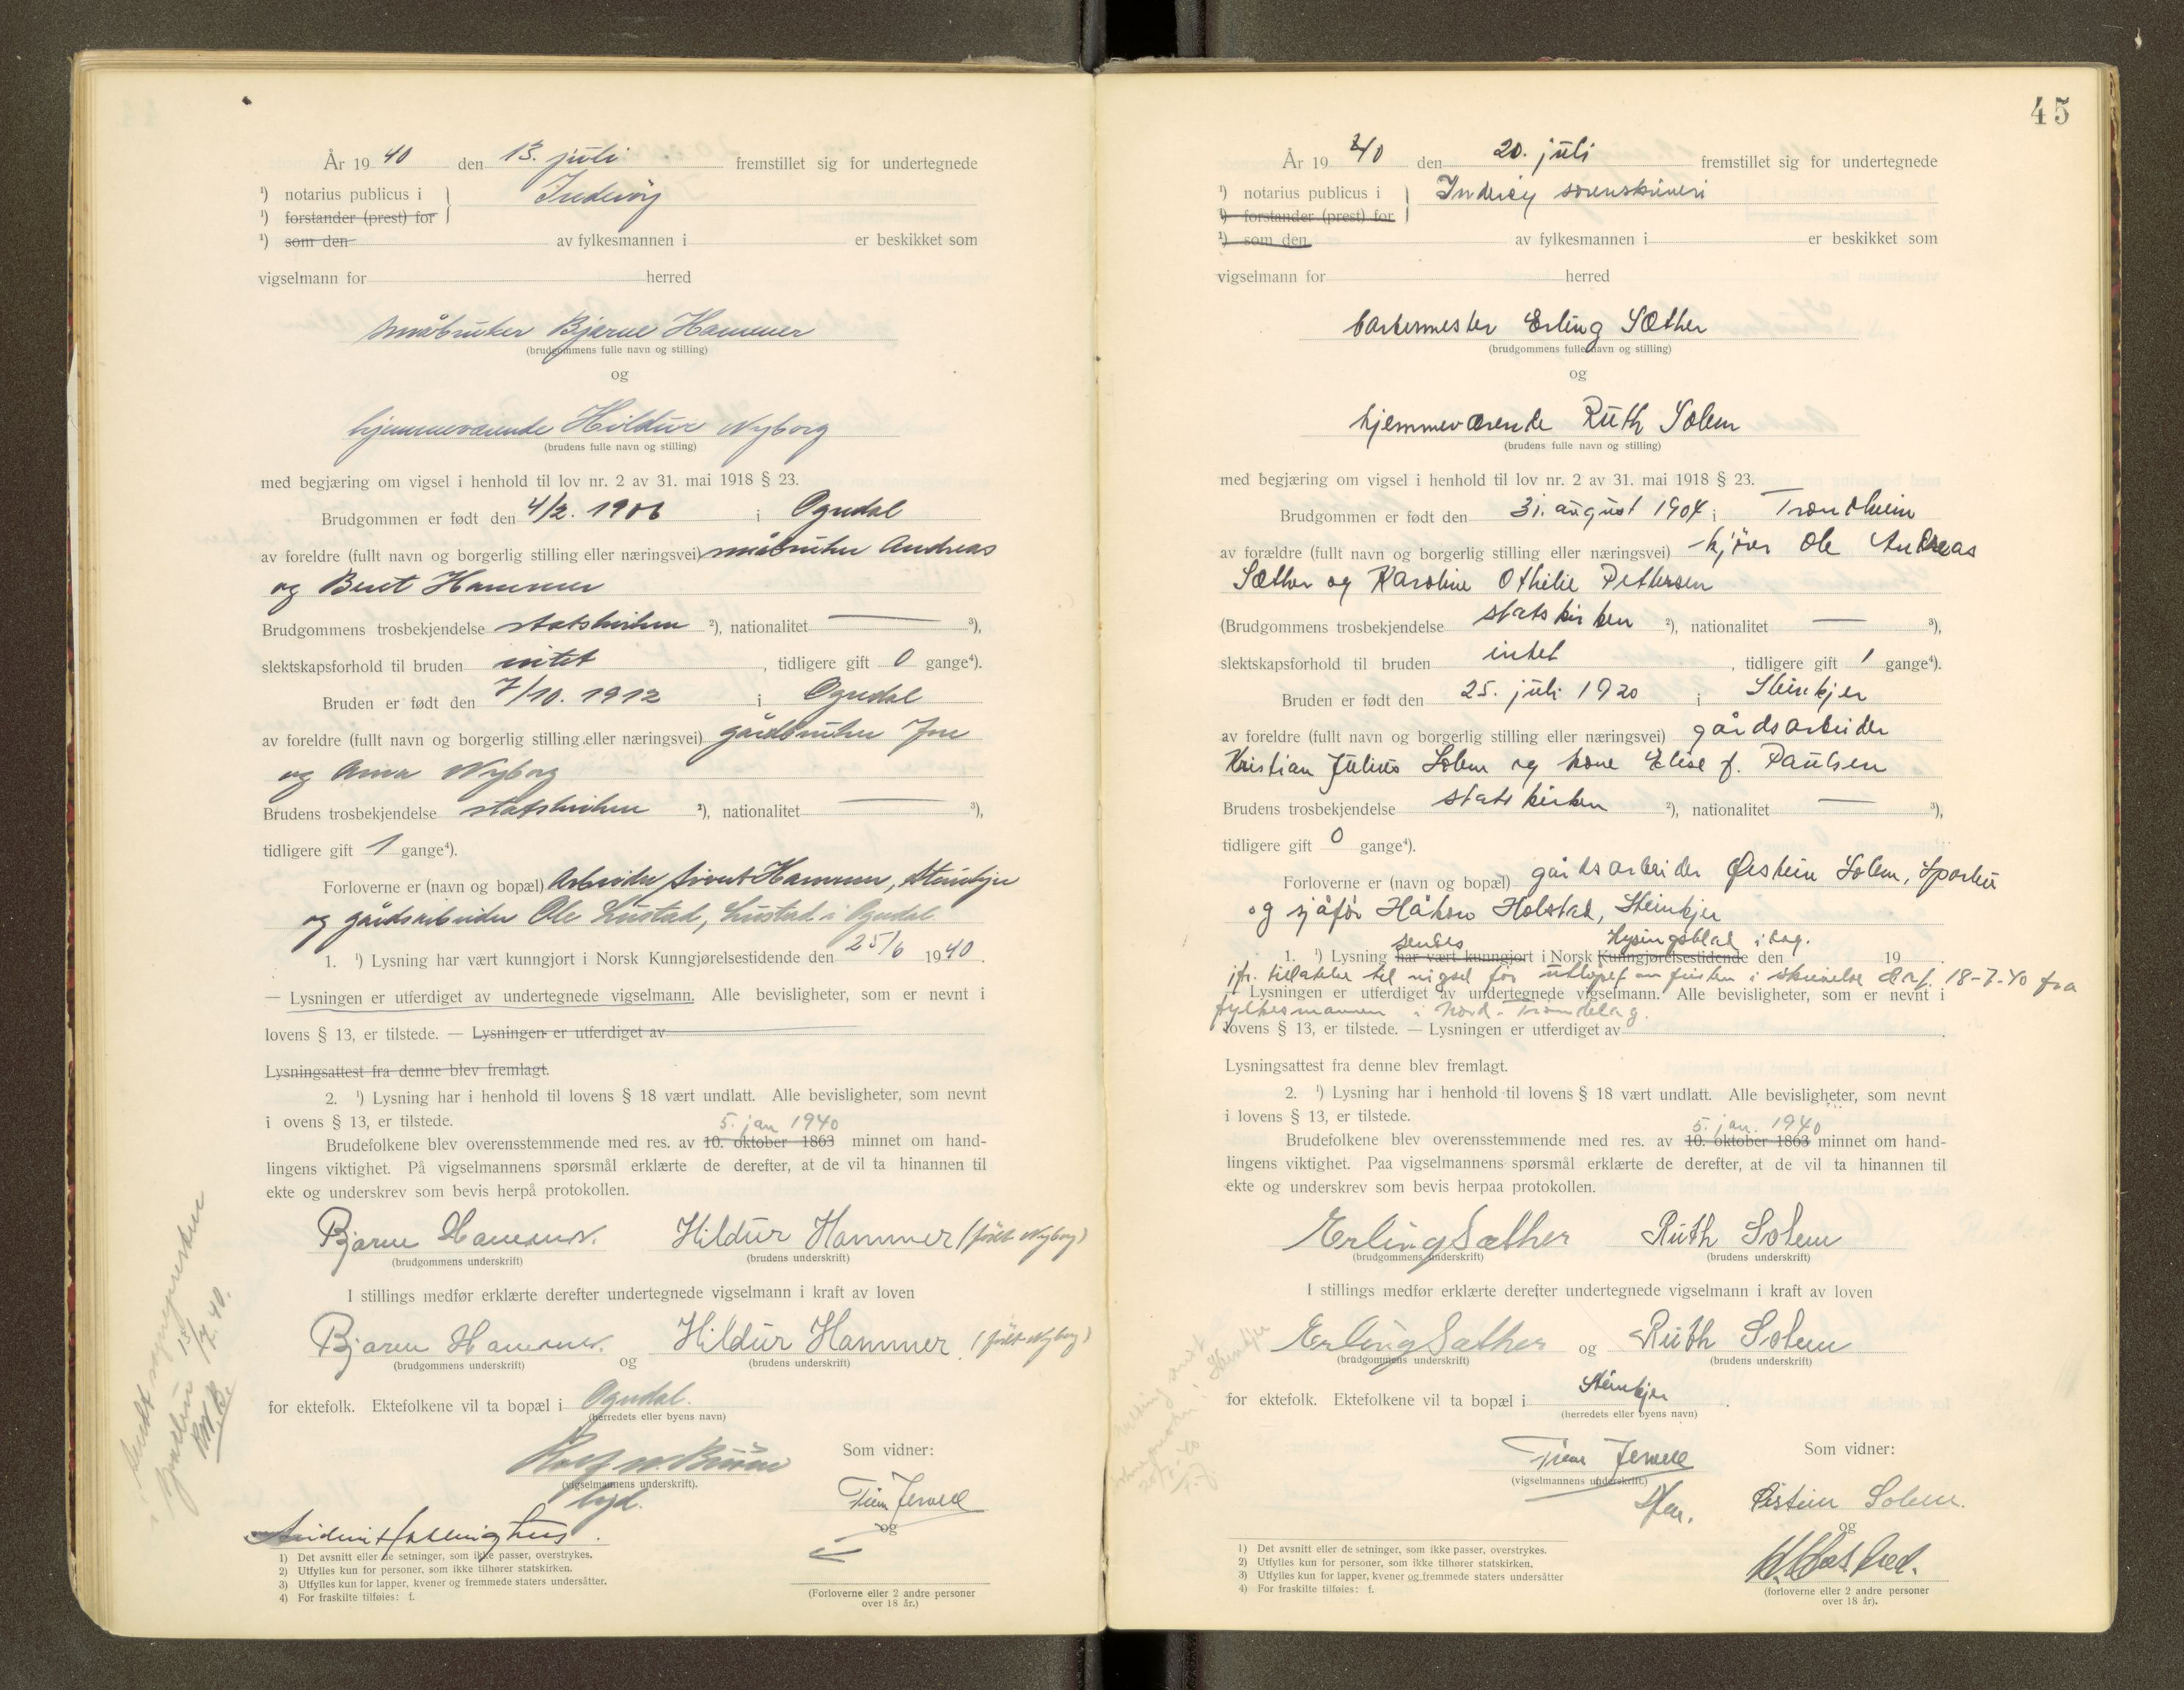 År 19 40 den 13. juli fremstillet sig for undertegnede
¹) notarius publicus i } Inderöy
¹) forstander (prest) for
¹) som den av fylkesmannen i er beskikket som
vigselmann for herred
småbruker Bjarne Hammer
(brudgommens fulle navn og stilling)
og
hjemmeværende Hildur Nyborg
(brudens fulle navn og stilling)
med begjæring om vigsel i henhold til lov nr. 2 av 31. mai 1918 § 23.
Brudgommen er født den 4/2. 1906 i Ogndal
av foreldre (fullt navn og borgerlig stilling eller næringsvei) småbruker Andreas
og Beret Hammer
Brudgommens trosbekjendelse statskirken ²), nationalitet — ³),
slektskapsforhold til bruden intet, tidligere gift 0 gange⁴).
Bruden er født den 7/10. 1912 i Ogndal
av foreldre (fullt navn og borgerlig stilling eller næringsvei) gårdbruker
og Anna Nyborg
Brudens trosbekjendelse statskirken ²), nationalitet — ³),
tidligere gift 1 gange⁴).
Forloverne er (navn og bopæl) Arbeider Sivert Hammer, Steinkjer
og gårdsarbeider Ole Lustad, Lustad i Ogndal
1. ¹) Lysning har vært kunngjort i Norsk Kunngjørelsestidende den 25/6 1940.
— Lysningen er utferdiget av undertegnede vigselmann. Alle bevisligheter, som er nevnt i
lovens § 13, er tilstede. — Lysningen er utferdiget av
Lysningsattest fra denne blev fremlagt.
2. ¹) Lysning har i henhold til lovens § 18 vært undlatt. Alle bevisligheter, som nevnt
i ovens § 13, er tilstede.
5. jan 1940
Brudefolkene blev overensstemmende med res. av 10. oktober 1863 minnet om hand-
lingens viktighet. På vigselmannens spørsmål erklærte de derefter, at de vil ta hinannen til
ekte og underskrev som bevis herpå protokollen.
Bjarne Hammer. Hildur Hammer (født Nyborg)
(brudgommens underskrift) (brudens underskrift)
I stillings medfør erklærte derefter undertegnede vigselmann i kraft av loven
Bjarne Hammer. og Hildur Hammer. (født Nyborg)
(brudgommens underskrift) (brudens underskrift)
for ektefolk. Ektefolkene vil ta bopæl i Ogndal.
(herredets eller byens navn)
Sendt sognepresten
13/7. 40.
Som vidner:
(vigselmannens underskrift).
og
1) Det avsnitt eller de setninger, som ikke passer, overstrykes.
2) Utfylles kun for personer, som ikke tilhører statskirken.
3) Utfylles kun for lapper, kvener og fremmede staters undersåtter.
4) For fraskilte tilføies: f.
(Forloverne eller 2 andre personer
over 18 år.)
45
År 19 40 den 20. juli fremstillet sig for undertegnede
¹) notarius publicus i } Inderøy sorenskriveri
¹) forstander (prest) for
¹) som den av fylkesmannen i er beskikket som
vigselmann for herred
barbermester Erling Sæther
(brudgommens fulle navn og stilling)
og
hjemmeværende Ruth Solem
(brudens fulle navn og stilling)
med begjæring om vigsel i henhold til lov nr. 2 av 31. mai 1918 § 23.
Brudgommen er født den 31. august 1904 i Trondheim
av forældre (fullt navn og borgerlig stilling eller næringsvei) kjører Ole Andreas
Sæther og Karoline Othilie Pettersen
(Brudgommens trosbekjendelse statskirken ²), nationalitet — ³),
slektskapsforhold til bruden intet, tidligere gift 1 gange⁴).
Bruden er født den 25. juli 1920 i Steinkjer
av foreldre (fullt navn og borgerlig stilling eller næringsvei) gårdsarbeider
Kristian Julius Solem og kone Elise f. Paulsen
Brudens trosbekjendelse statskirken ²), nationalitet — ³),
tidligere gift 0 gange⁴).
Forloverne er (navn og bopæl) gårdsarbeider Øistein Solem, Sparbu
og sjåfør Håkon Holstad, Steinkjer
sendes Lysingsblad idag.
1. ¹) Lysning har vært kunngjort i Norsk Kunngjørelsestidende den 19
jfr. tillatelse til vigsel før utløpet av fristen i skrivelse dat. 18-7-40 fra
Lysningen er utferdiget av undertegnede vigselmann. Alle bevisligheter, som er nevnt i
fylkesmannen i Nord-Trøndelag.
lovens § 13, er tilstede. — Lysningen er utferdiget av
Lysningsattest fra denne blev fremlagt.
2. ¹) Lysning har i henhold til lovens § 18 vært undlatt. Alle bevisligheter, som nevnt
i lovens § 13, er tilstede.
5. jan. 1940
Brudefolkene blev overensstemmende med res. av 10. oktober 1863 minnet om hand-
lingens viktighet. Paa vigselmannens spørsmål erklærte de derefter, at de vil ta hinannen til
ekte og underskrev som bevis herpaa protokollen.
Erling Sæther Ruth Solem
(brudgommens underskrift) (brudens underskrift)
I stillings medfør erklærte derefter undertegnede vigselmann i kraft av loven
Erling Sæther og Ruth Solem
(brudgommens underskrift) (brudens underskrift)
for ektefolk. Ektefolkene vil ta bopæl i Steinkjer.
(herredets eller byens navn)
Som vidner:
(vigselmannens underskrift.)
Øistein Solem.
og
1) Det avsnitt eller de setninger, som ikke passer, overstrykes.
2) Utfylles kun for personer, som ikke tilhører statskirken.
3) Utfylles kun for lapper, kvener og fremmede staters undersåtter
4) For fraskilte tilføies: f.
(forloverne eller 2 andre personer
over 18 år).